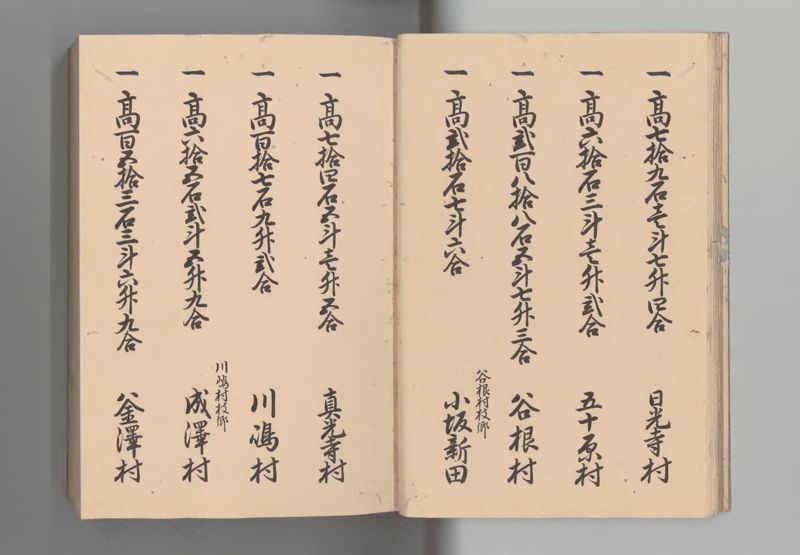 一高七拾九石壱斗七升四合 日光寺村
一高六拾石三斗壱升弐合 五十原村
一高弐百八拾八石五斗七升三合 谷根村
谷根村枝郷
一高弐拾石七斗六合 小坂新田
一高七拾四石五斗壱升五合 真光寺村
一高百拾七石九升弐合 川嶋村
川嶋村枝郷
一高六拾五石弐斗五升九合 成澤村
一高百五拾三石三斗六升九合 釜澤村